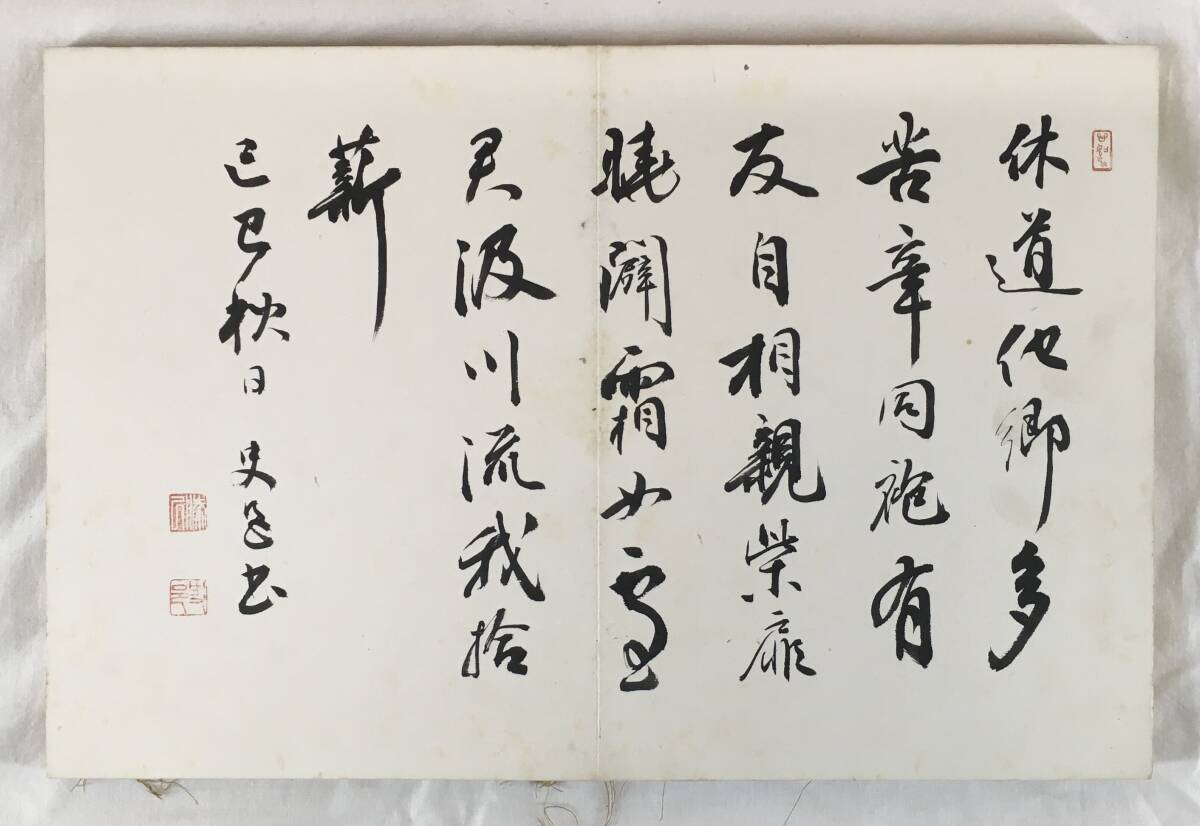 休道他鄉多
苦辛同袍有
友自相親柴扉
曉闢霜如雪
君汲川流我拾
薪
己巳秋日 史邑書